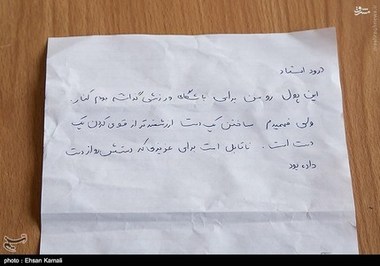 درود استاد
این پول رو من برای باشگاه ورزشی گذاشته بودم کنار.
ولی فهمیدم ساختن یک دست ارزشمندتر از قوی کردن یک
دست است. ناقابل است برای عزیزی که دستش رو از دست
داده بود
photo : Ehsan Kamali